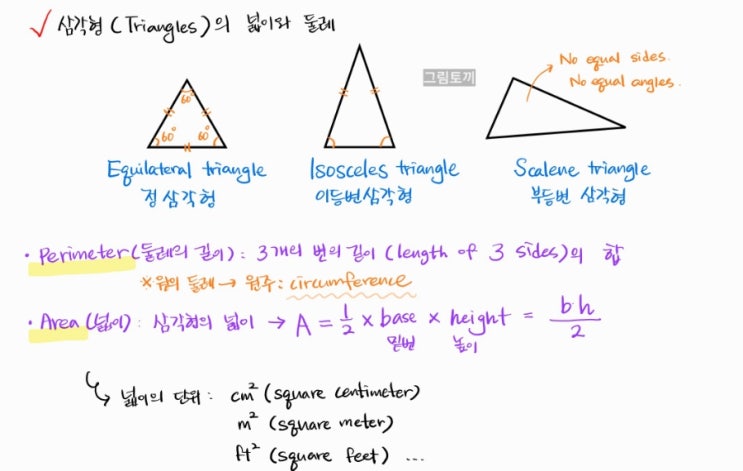 ✓ 삼각형 (Triangles)의 넓이와 둘레
그림토끼
No equal sides.
No equal angles.
60°
60° 60°
Equilateral triangle
정삼각형
Isosceles triangle
이등변삼각형
Scalene triangle
부등변 삼각형
· Perimeter(둘레의 길이) : 3개의 변의 길이 (length of 3 sides)의 합
※ 원의 둘레 → 원주 : circumference
· Area (넓이) : 삼각형의 넓이 → A = 1/2 × base × height = b·h/2
밑변 높이
↳ 넓이의 단위 : cm² (square centimeter)
m² (square meter)
ft² (square feet) ...